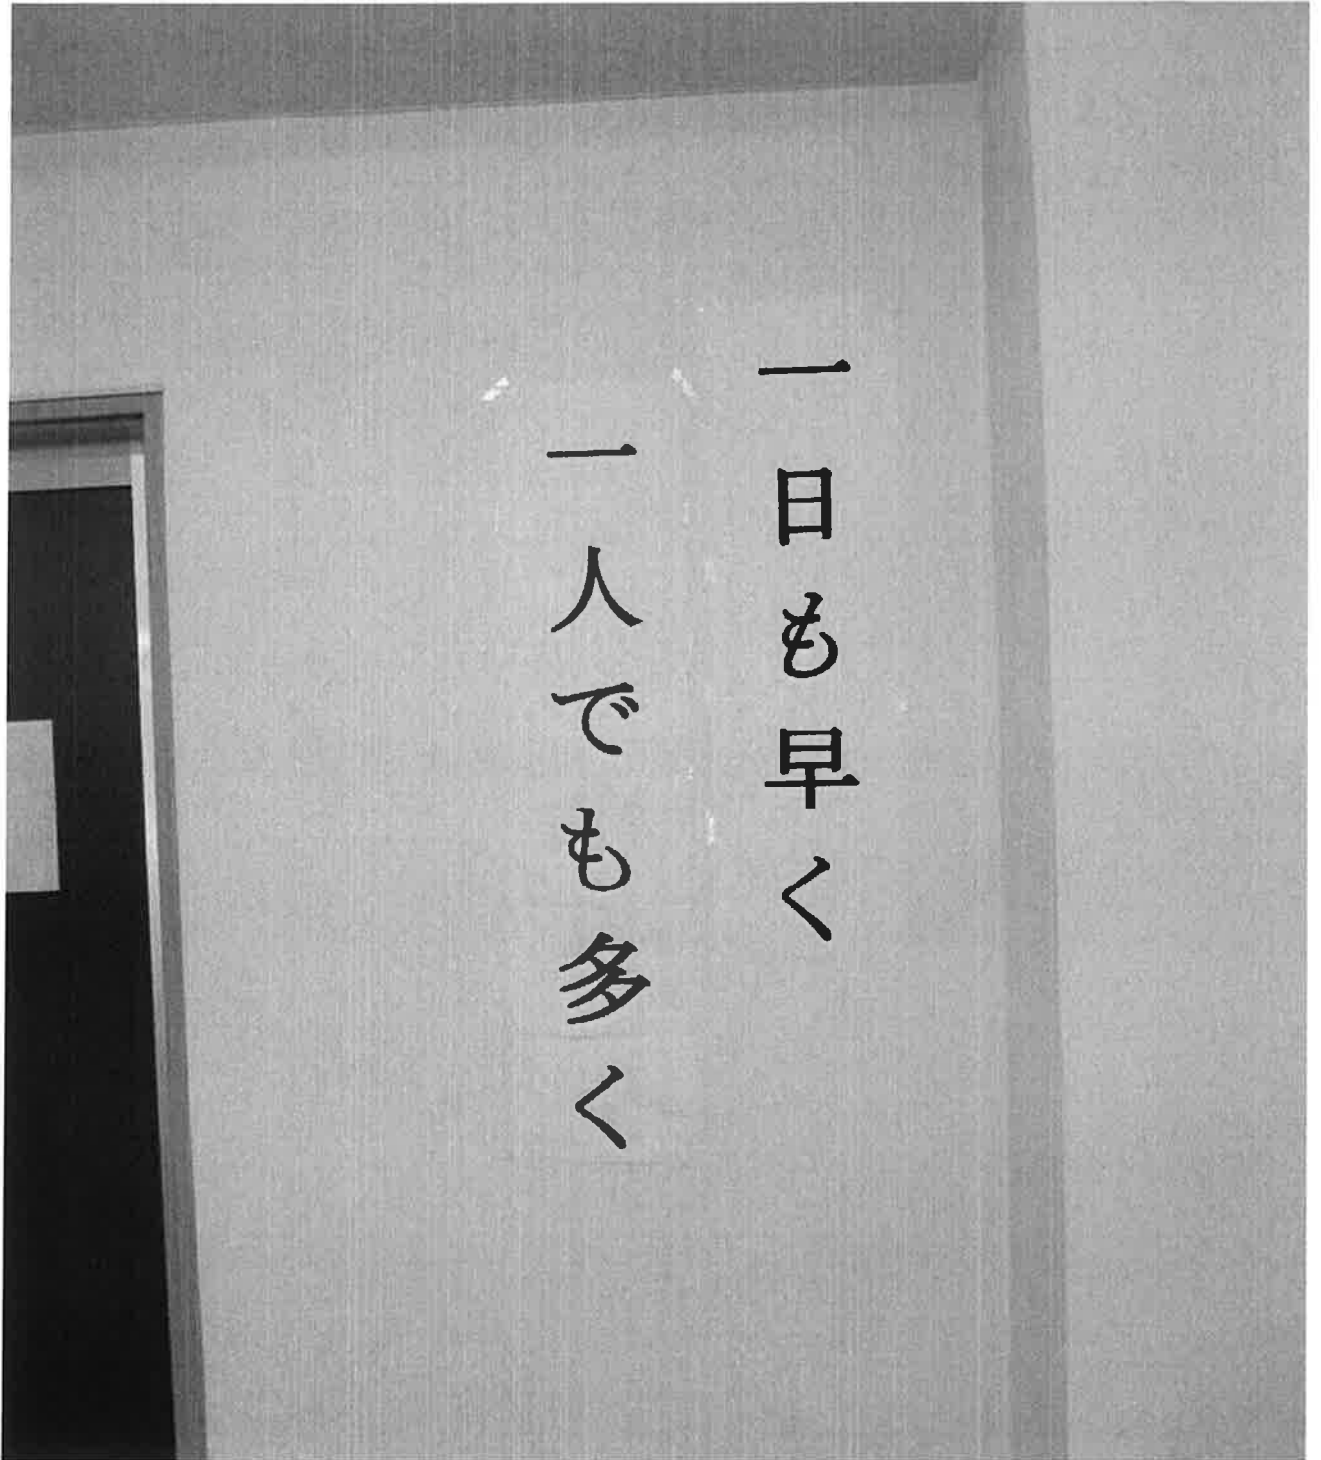 一日も早く
一人でも多く